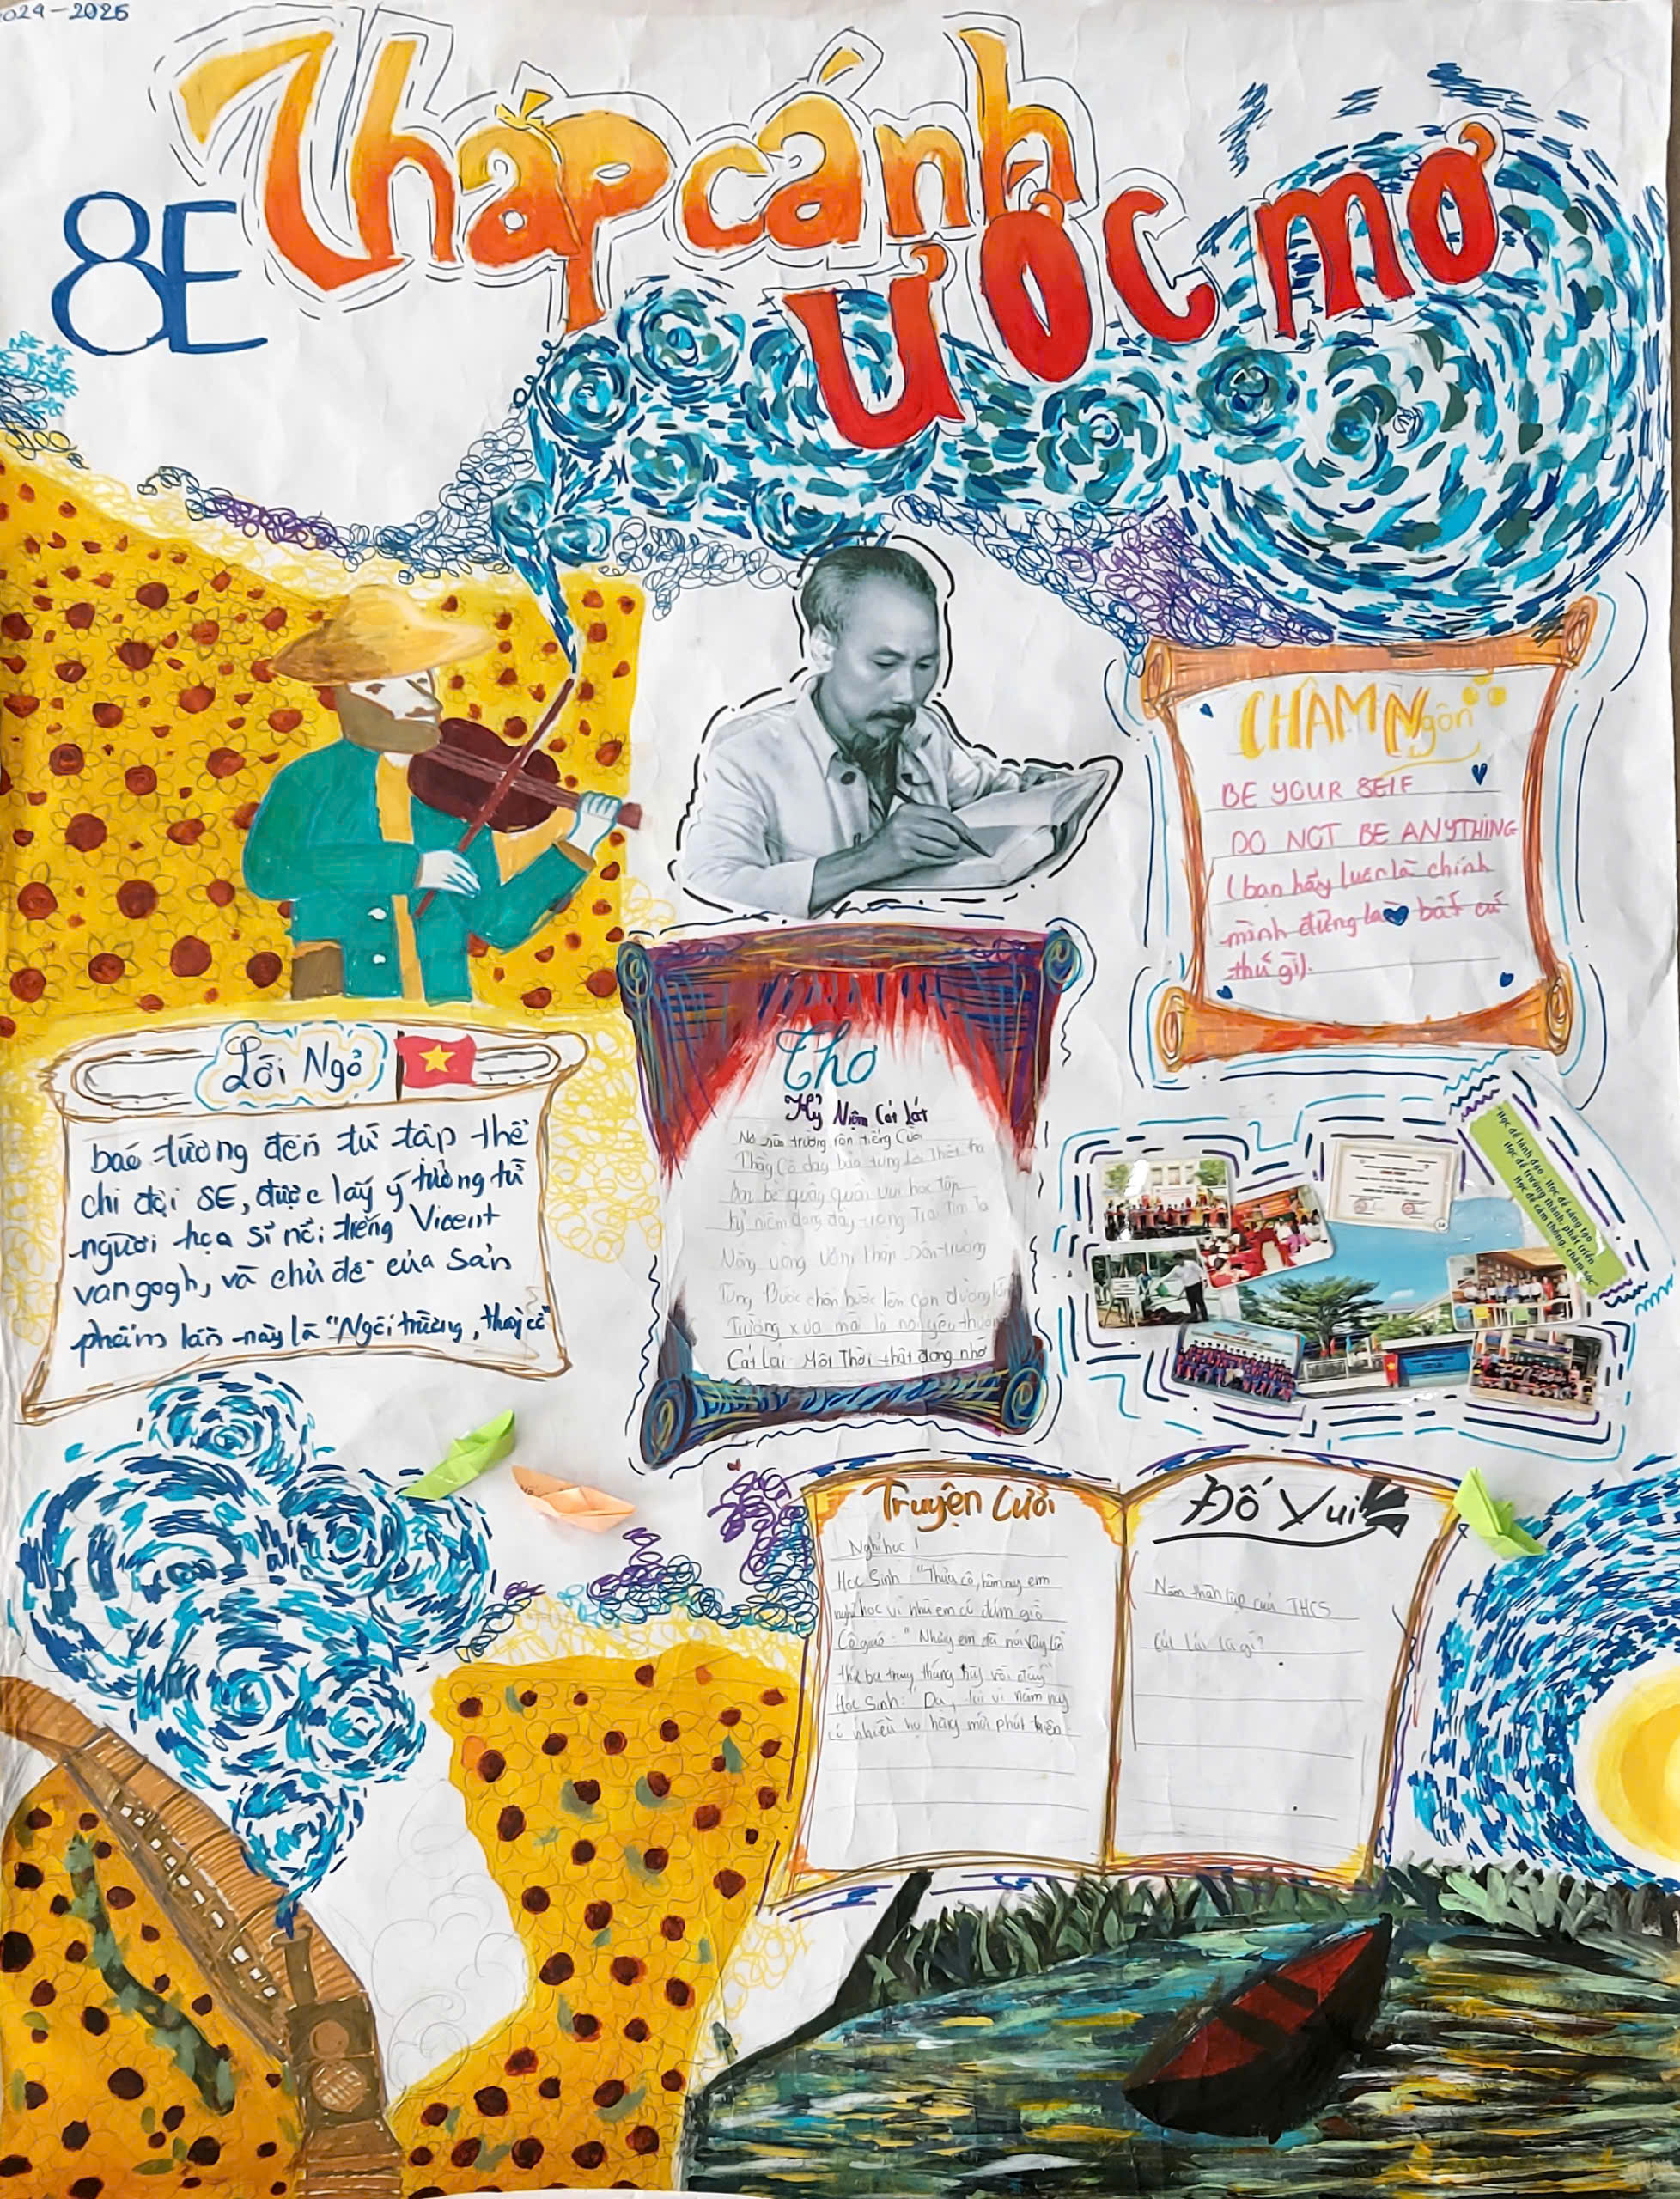 2024-2025
8E
Thắp cánh
ƯỚC MƠ
CHÂM Ngôn
BE YOUR SEIF
DO NOT BE ANYTHING
(bạn hãy luôn là chính
mình đừng là bất cứ
thứ gì).
Lời Ngỏ
báo tường đến từ tập thể
chi đội 8E, được lấy ý tưởng từ
người họa sĩ nổi tiếng Vicent
vangogh, và chủ đề của sản
phẩm lần này là "Ngôi trường, thầy cô"
Thơ
Kỷ Niệm Cát Lái
trường rộn tiếng Cười
Thầy Cô dạy bảo từng
Bạn bè quây quần vui học tập
kỷ niệm trong Trái Tim ta
Nắng vàng sân trường
Từng Bước chân bước lên con đường
Trường xưa mãi là nơi yêu thương
Cát Lái Một Thời thật đáng nhớ
Học để lãnh đạo Học để sáng tạo
Học để trưởng thành, phát triển
Học để cảm thông, chăm sóc
Truyện Cười
Nghỉ học !
Học Sinh : "Thưa cô, hôm nay em
nghỉ học vì nhà em có đám giỗ
Cô giáo : " Nhưng em đã nói vậy lần
thứ ba trong tháng này rồi đấy"
Học Sinh: " Dạ, tại vì năm nay
có nhiều họ hàng mới phát hiện
Đố Vui
Năm thành lập của THCS
Cát Lái là gì?